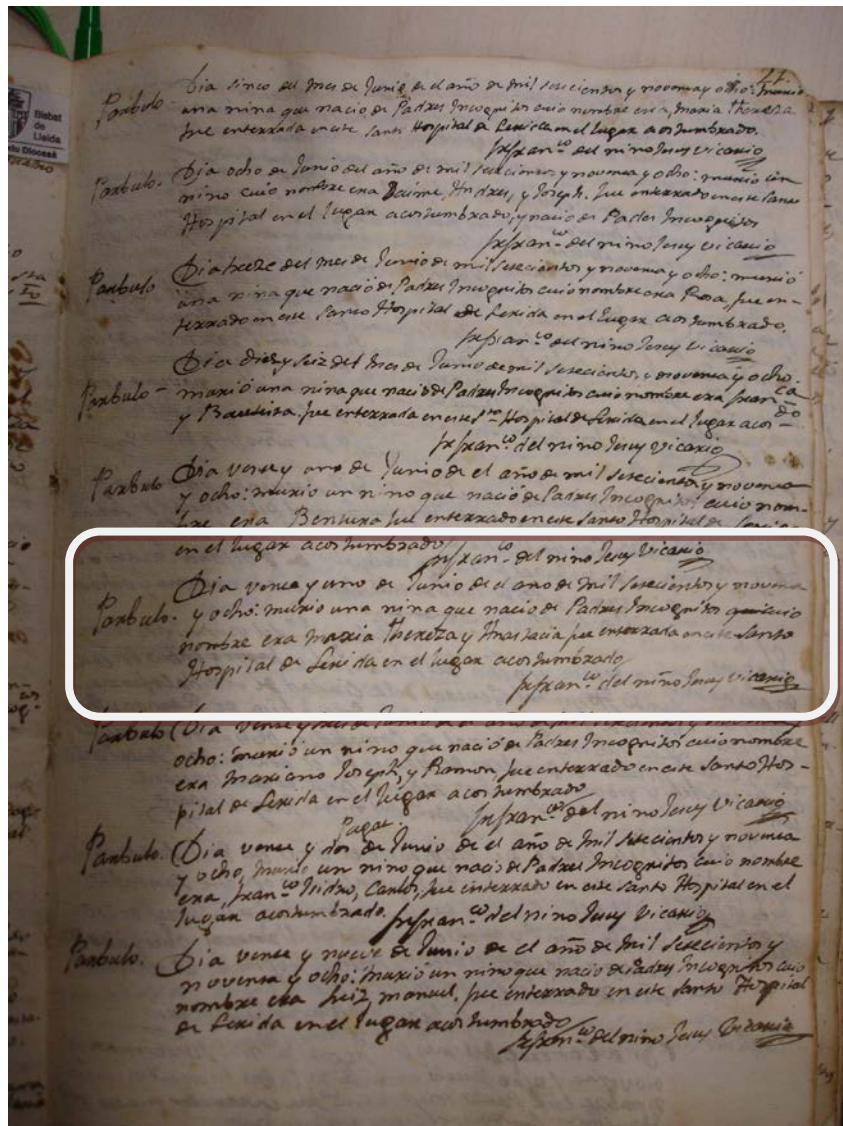 47.
Bisbat
de
Lleida
Parbulo. Dia sinco del mes de Junio de el año de mil setecientos y noventa y ocho: murio
una nina que nacio de Padres Incognitos cuio nombre era, Maria Thereza
fue enterrada en este Santo Hospital de Lerida en el lugar acostumbrado.
fr fran.co del nino Jesus Vicario
Parbulo. Dia ocho de Junio del año de mil setecientos, y noventa y ocho: murio un
nino cuio nombre era Jaime, Andres, y Joseph. fue enterrado en este Santo
Hospital en el lugar acostumbrado, y nacio de Padres Incognitos
fr fran.co del nino Jesus Vicario
Parbulo Dia treze del mes de Junio de mil setecientos y noventa y ocho: murió
una nina que nació de Padres Incognitos cuio nombre era Rosa, fue en-
terrado en este Santo Hospital de Lerida en el lugar acostumbrado.
fr fran.co del nino Jesus Vicario
Dia dies y seiz del mes de Junio de mil setecientos, y noventa y ocho.
Parbulo - murió una nina que nacio de Padres Incognitos cuio nombre era fran.ca
y Bautista, fue enterrada en este S.to Hospital de Lerida en el lugar acos-
fr fran.co del nino Jesus Vicario
Parbulo Dia vente y uno de Junio de el año de mil setecientos y noventa
y ocho: murio un nino que nació de Padres Incognitos cuio nom-
bre era Bentura fue enterrado en este Santo Hospital de
en el lugar acostumbrado fr fran.co del nino Jesus Vicario
Dia vente y uno de Junio de el ano de mil setecientos y noventa
Parbulo. y ocho: murio una nina que nacio de Padres Incognitos cuio
nombre era Maria Thereza y Anastacia fue enterrada en este Santo
Hospital de Lerida en el lugar acostumbrado
fr fran.co del niño Jesus Vicario
Parbulo Dia vente y tres de Junio de el año de mil setecientos y noventa y
ocho: murió un nino que nació de Padres Incognitos cuio nombre
era Mariano Joseph, y Ramon fue enterrado en este Santo Hos-
pital de Lerida en el lugar acostumbrado
fr fran.co del nino Jesus Vicario
Pagat.
Parbulo. Dia vente y dos de Junio de el año de Mil setecientos y noventa
y ocho, murio un nino que nació de Padres Incognitos cuio nombre
era, fran.co Isidro, Carlos, fue enterrado en este Santo Hospital en el
lugar acostumbrado. fr fran.co del nino Jesus Vicario
Parbulo. Dia vente y nueve de Junio de el año de Mil setecientos y
noventa y ocho: murió un nino que nacio de Padres Incognitos cuio
nombre era Luiz, Manuel. fue enterrado en este Santo Hospital
de Lerida en el lugar acostumbrado
fr fran.co del nino Jesus Vicario